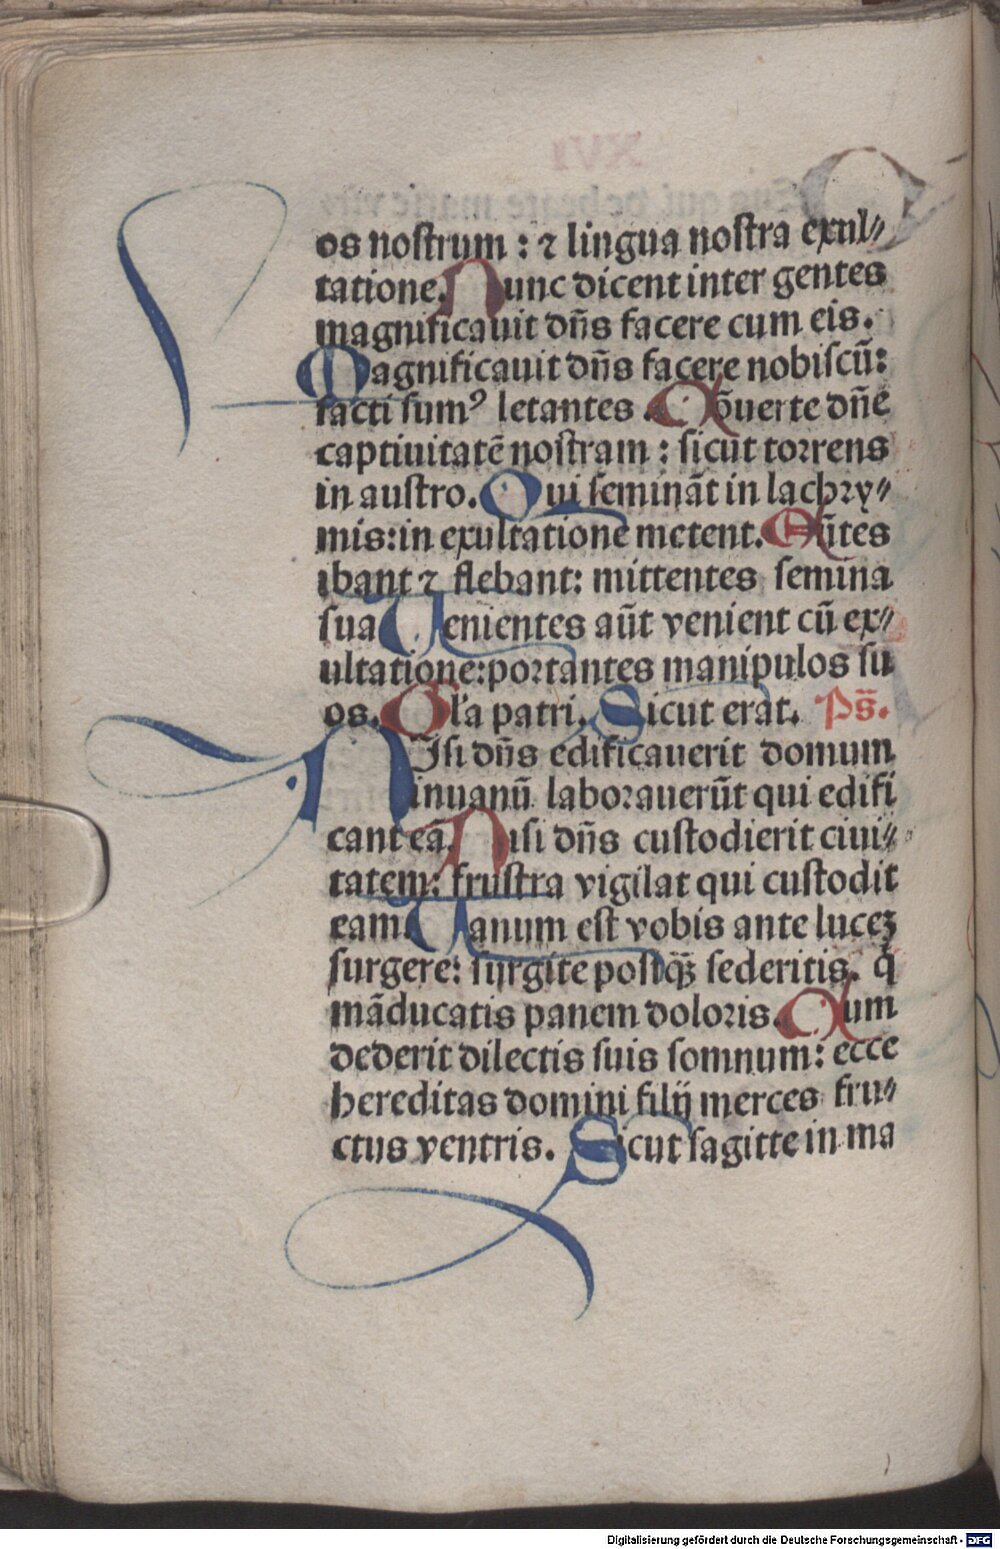 os nostrum : ⁊ lingua nostra exul⸗
tatione. Nunc dicent inter gentes
magnificauit dn̄s facere cum eis.
Magnificauit dn̄s facere nobiscū:
facti sumꝰ letantes. Cōuerte dn̄e
captiuitatē nostram : sicut torrens
in austro. Qui semināt in lachry⸗
mis: in exultatione metent. Eūtes
ibant ⁊ flebant: mittentes semina
sua Uenientes aūt venient cū ex⸗
ultatione: portantes manipulos su
os. Gl'a patri. Sicut erat. Ps̄.
NIsi dn̄s edificauerit domum
in uanū laborauerūt qui edifi
cant eā. Nisi dn̄s custodierit ciui⸗
tatem: frustra vigilat qui custodit
eam. Uanum est vobis ante luceꝫ
surgere: surgite postq̄ꝫ sederitis. q̇
māducatis panem doloris. Cum
dederit dilectis suis somnum: ecce
hereditas domini filij merces fru⸗
ctus ventris. Sicut sagitte in ma
Digitalisierung gefördert durch die Deutsche Forschungsgemeinschaft - DFG